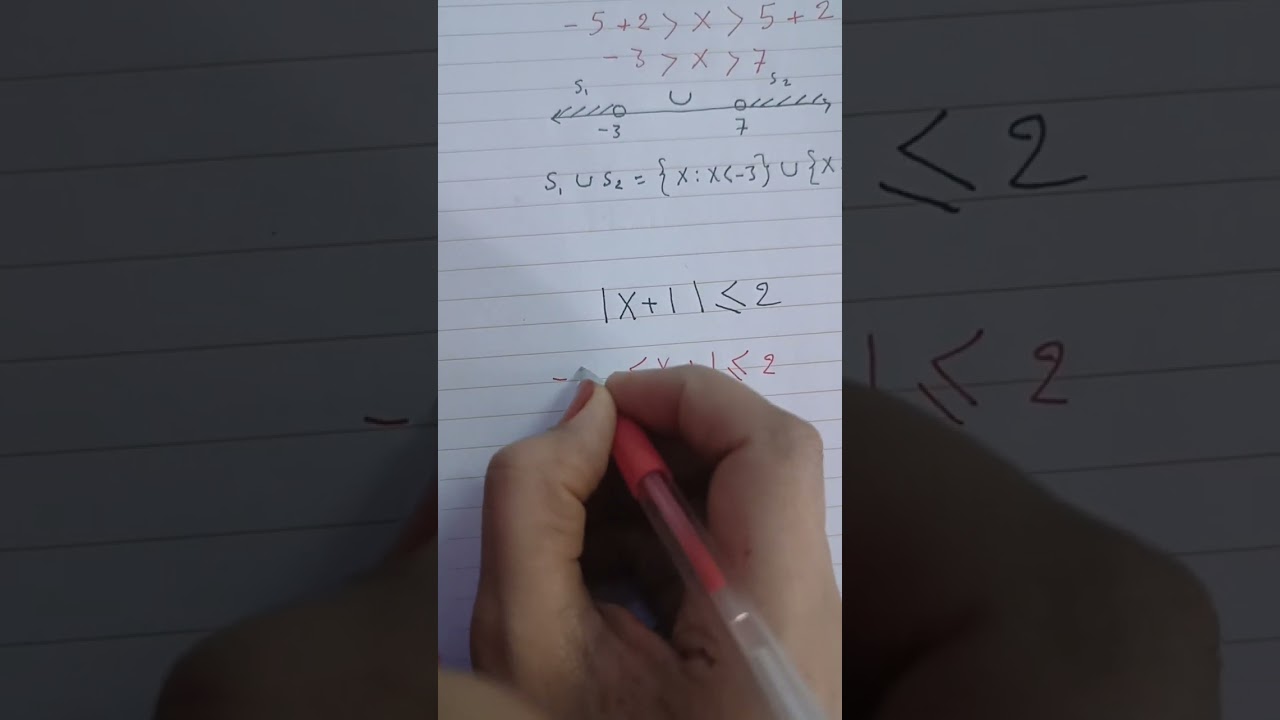 - 5 + 2 > x > 5 + 2
- 3 > x > 7
S₁ ∪ S₂
-3 7
S₁ ∪ S₂ = {x : x < -3} ∪ {x
|x + 1| ≤ 2
- ≤ x + 1 ≤ 2